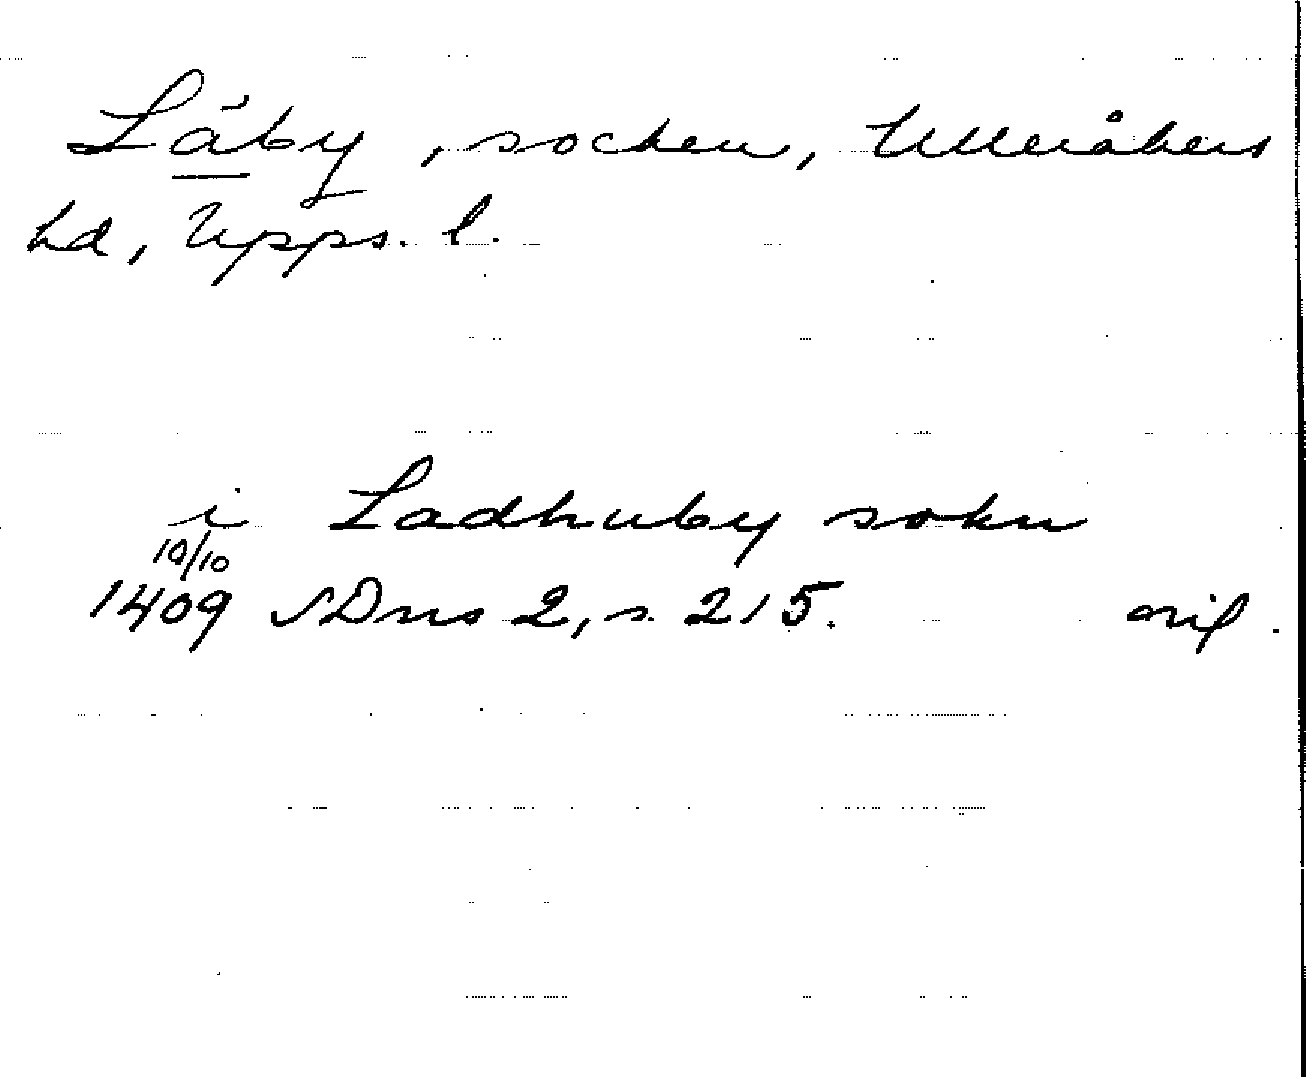 Läby, socken, Ulleråkers
hd, Upps. l.
i Ladhuby sokn
10/10
1409 SDns 2, s. 215. orig.